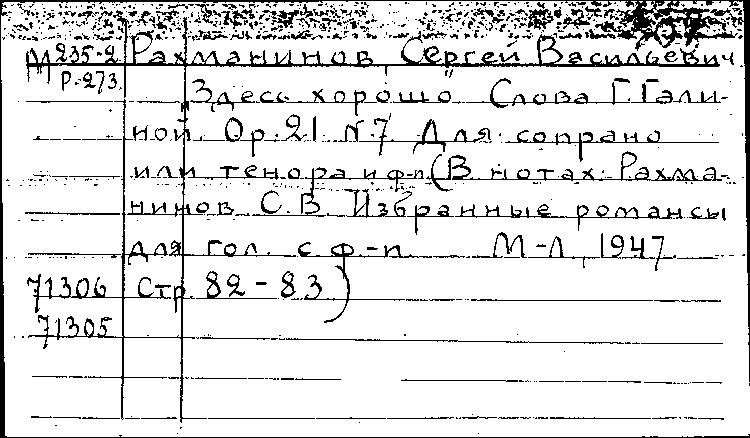 М 235-2 Рахманинов, Сергей Васильевич
Р-273
„Здесь хорошо" Слова Г. Гали-
ной. Ор. 21 N.7 Для сопрано
или тенора и ф-п (В нотах: Рахма-
нинов С.В. Избранные романсы
для гол. с ф-п. М-Л, 1947.
71306 Стр. 82-83)
71305